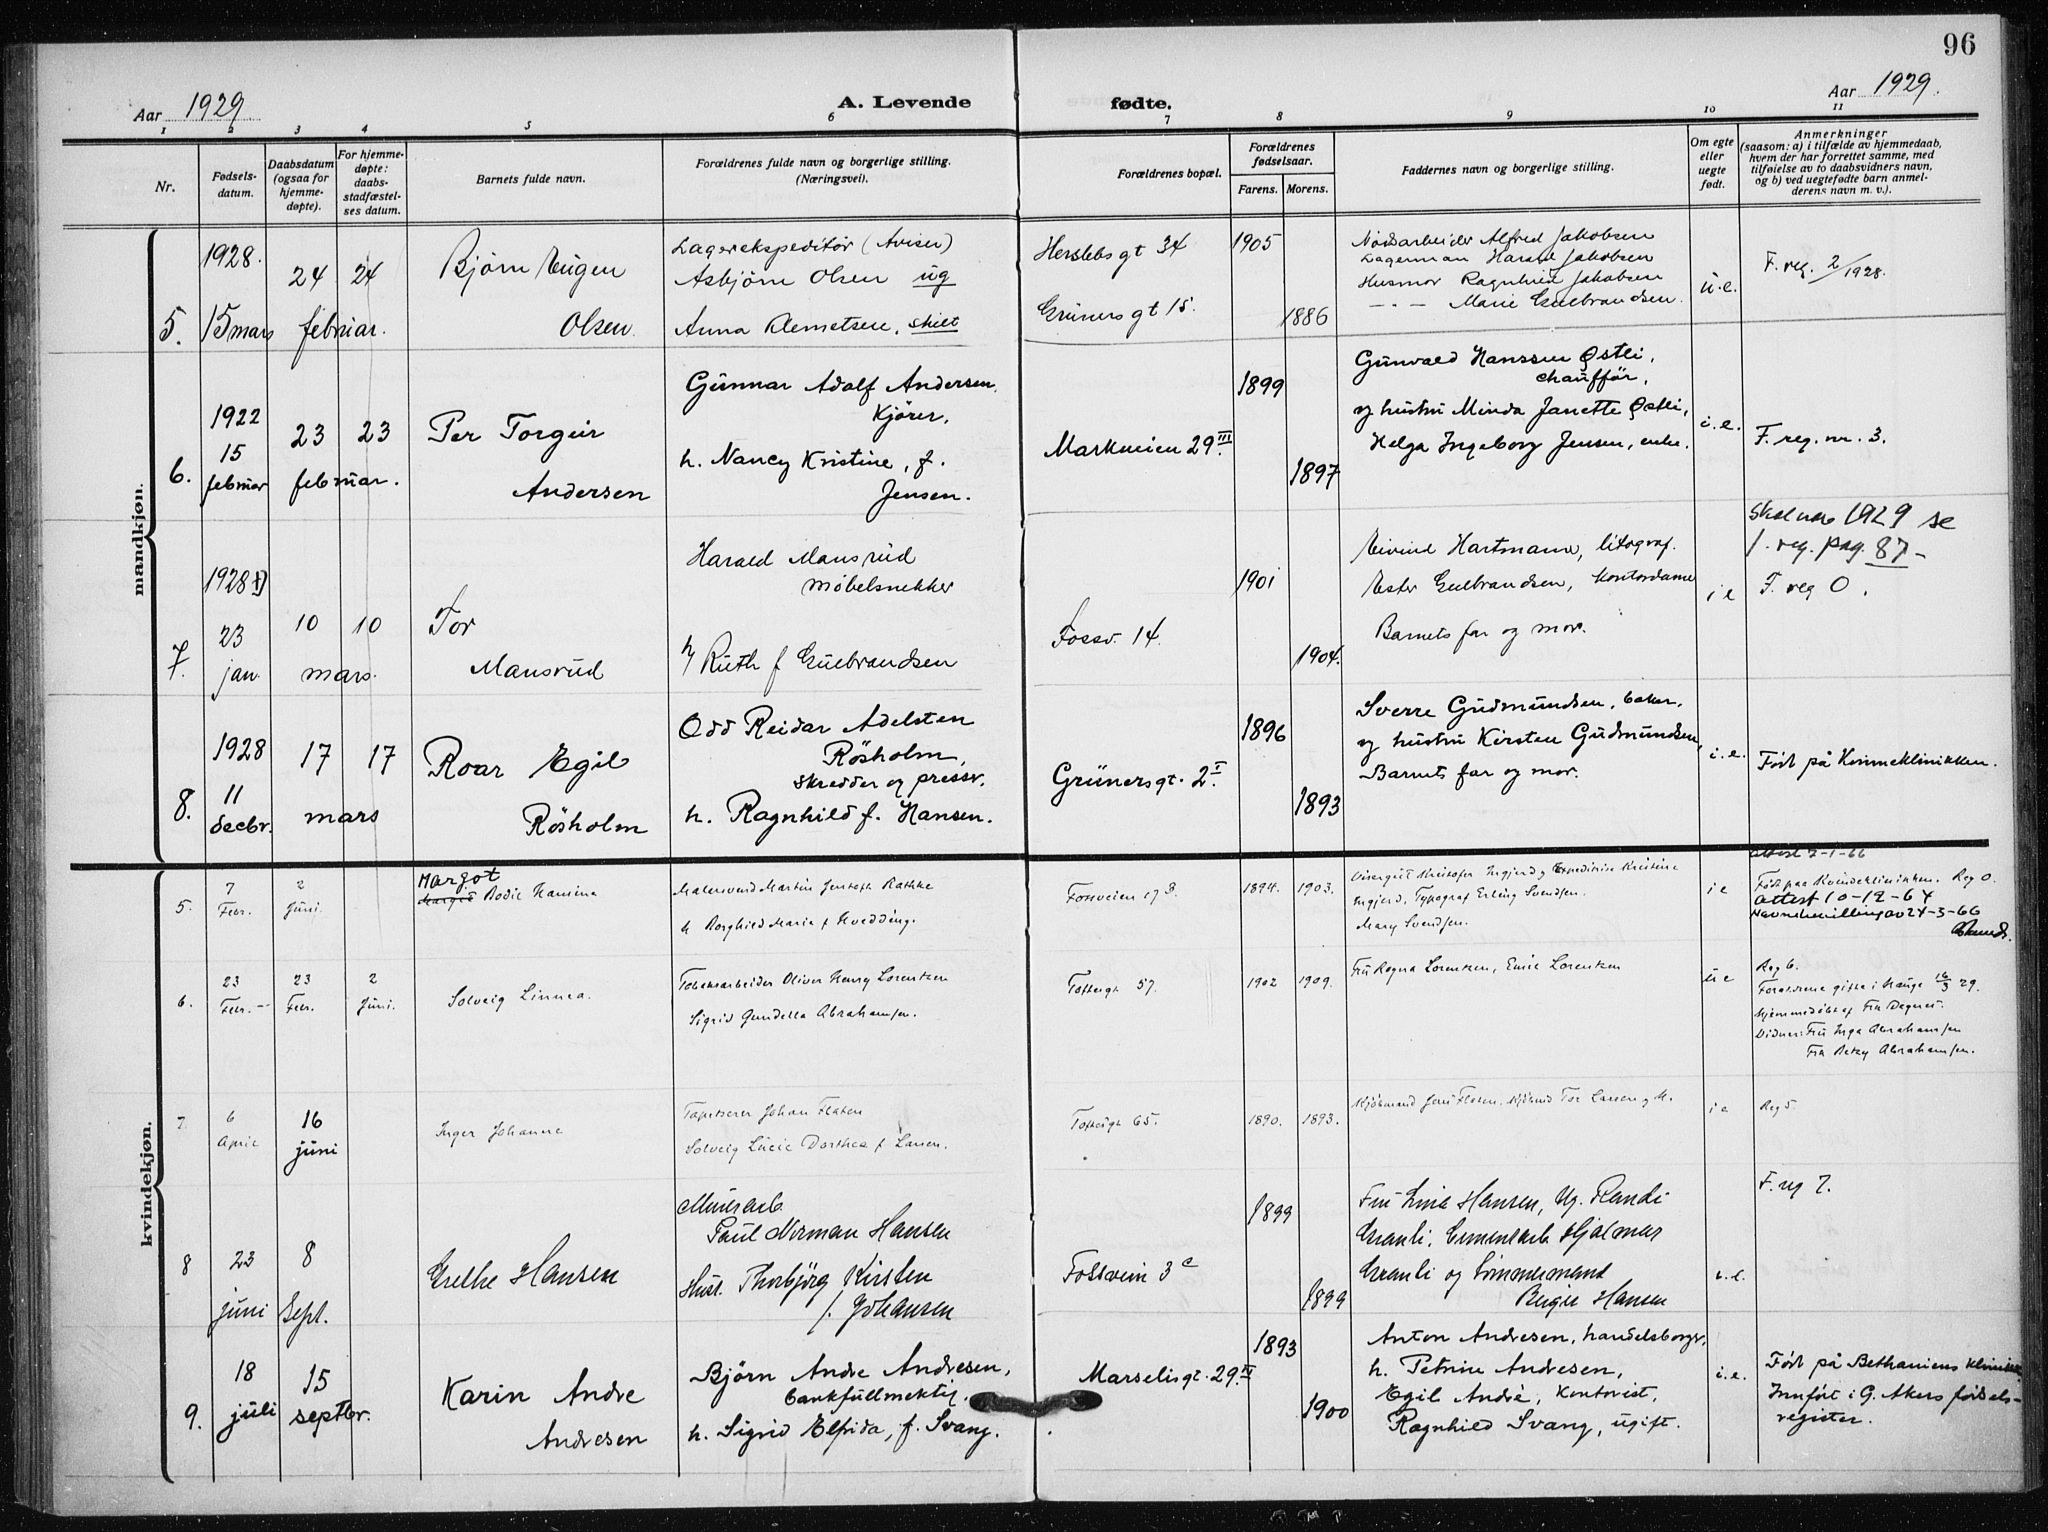 96
Aar 1929
A. Levende
fødte.
Aar 1929.
1 2 3 4 5 6 7 8 9 10 11
Nr.
Fødsels-
datum.
Daabsdatum
(ogsaa for
hjemme-
døpte).
For hjemme-
døpte:
daabs-
stadfæstel-
ses datum.
Barnets fulde navn.
Forældrenes fulde navn og borgerlige stilling.
(Næringsvei).
Forældrenes bopæl.
Forældrenes
fødselsaar.
Farens. Morens.
Faddernes navn og borgerlige stilling.
Om egte
eller
uegte
født.
Anmerkninger
(saasom: a) i tilfælde av hjemmedaab,
hvem der har forrettet samme, med
tilføielse av to daabsvidners navn,
og b) ved uegtefødte barn anmel-
derens navn m. v.).
mandkjøn.
5.
1928.
15 mars
24 24
februar.
Bjørn Eugen
Olsen
Lagerekspeditør (Aviser)
Asbjørn Olsen ug
Anna Klemetsen, skilt
Herslebs gt 34
Grüners gt 15.
1905
1886
Alfred Jakobsen
Lagermann Harald Jakobsen
Husmor Ragnhild Jakobsen
— " — Marie Gulbrandsen.
u.e.
F. reg. 2/1928.
6.
1922
15
februar
23 23
februar.
Per Torgeir
Andersen
Gunnar Adolf Andersen
Kjører,
h. Nancy Kristine, f.
Jensen.
Markveien 29 III.
1899
1897
Gunvald Hanssen Østli,
chauffør,
og hustru Minda Janette Østli,
Helga Ingeborg Jensen, enke.
i.e.
F. reg. nr. 3.
7.
1928
23
jan.
10 10
mars.
Tor
Mansrud
Harald Mansrud
Møbelsnekker
h/ Ruth f Gulbrandsen
Fossv. 14.
1901
1904.
Eivind Hartmann, litograf.
Ester Gulbrandsen, kontordame
Barnets far og mor.
i e
Skal være 1929 se
f. reg. pag. 87 -
F. reg 0.
8.
1928
11
decbr.
17 17
mars
Roar Egil
Røsholm
Odd Reidar Adelsten
Røsholm,
skredder og pressr.
h. Ragnhild f. Hansen.
Grünersgt. 2 I.
1896
1893
Sverre Gudmundsen, baker,
og hustru Kirsten Gudmundsen,
Barnets far og mor.
i.e.
Født på Kvinneklinikken.
kvindekjøn.
5.
7
Febr.
2
Juni.
Margot
Margit Bodil Hansina
Malersvend Martin Jentoft Rathke
h Borghild Maria f Hvedding.
Fossveien 17 B.
1894. 1903.
Kristofer Ingjerd og Kristine
Ingjerd, Typograf Erling Svendsen.
Mary Svendsen.
i e
attest 7-1-66
Født paa Kvindeklinikken. Reg 0.
attest 10-12-64
Navnebevilling av 24-3-66
6.
23
Febr.
23
Febr.
2
Juni.
Solveig Linnea.
Tobaksarbeider Oliver Henry Lorentzen
Sigrid Gundella Abrahamsen.
Toftesgt 57.
1902 1909.
Fru Ragna Lorentzen, Emil Lorentzen
u e
Reg 6.
Forældrene gifte i Hauge 16/3 29.
Hjemmedøbt af Fru Dagner.
Vidner: Fru Inga Abrahamsen
Fru Betzy Abrahamsen.
7.
6
April
16
juni
Inger Johanne
Tapetserer Johan Flaten
Solveig Lucie Dorthea f Larsen.
Toftesgt 65.
1890. 1893.
Kjøbmand Jens Flaten, Kjøbmd Tor Larsen og H.
i e
Reg 5.
8
23
juni
8
Sept.
Grethe Hansen
Murarb.
Paul Norman Hansen
Hust. Thorbjørg Kirsten
f. Johansen
Fossvein 3 c
1899
1899
Fru Lina Hansen, Ug. Randi
Granli, Cementarb Hjalmar
Granli og Tømmermand
Birger Hansen
i.e.
F. reg 7.
9.
18
juli
15
septbr.
Karin Andre
Andresen
Bjørn Andre Andresen,
bankfullmektig,
h. Sigrid Elfrida, f. Svang.
Marselisgt. 29 IV.
1893
1900
Anton Andresen, handelsborgr,
h. Petrine Andresen,
Egil André, kontorist,
Ragnhild Svang, ugift.
i.e.
Født på Bethaniens klinikk
Innført i G. Akers fødsels-
register.